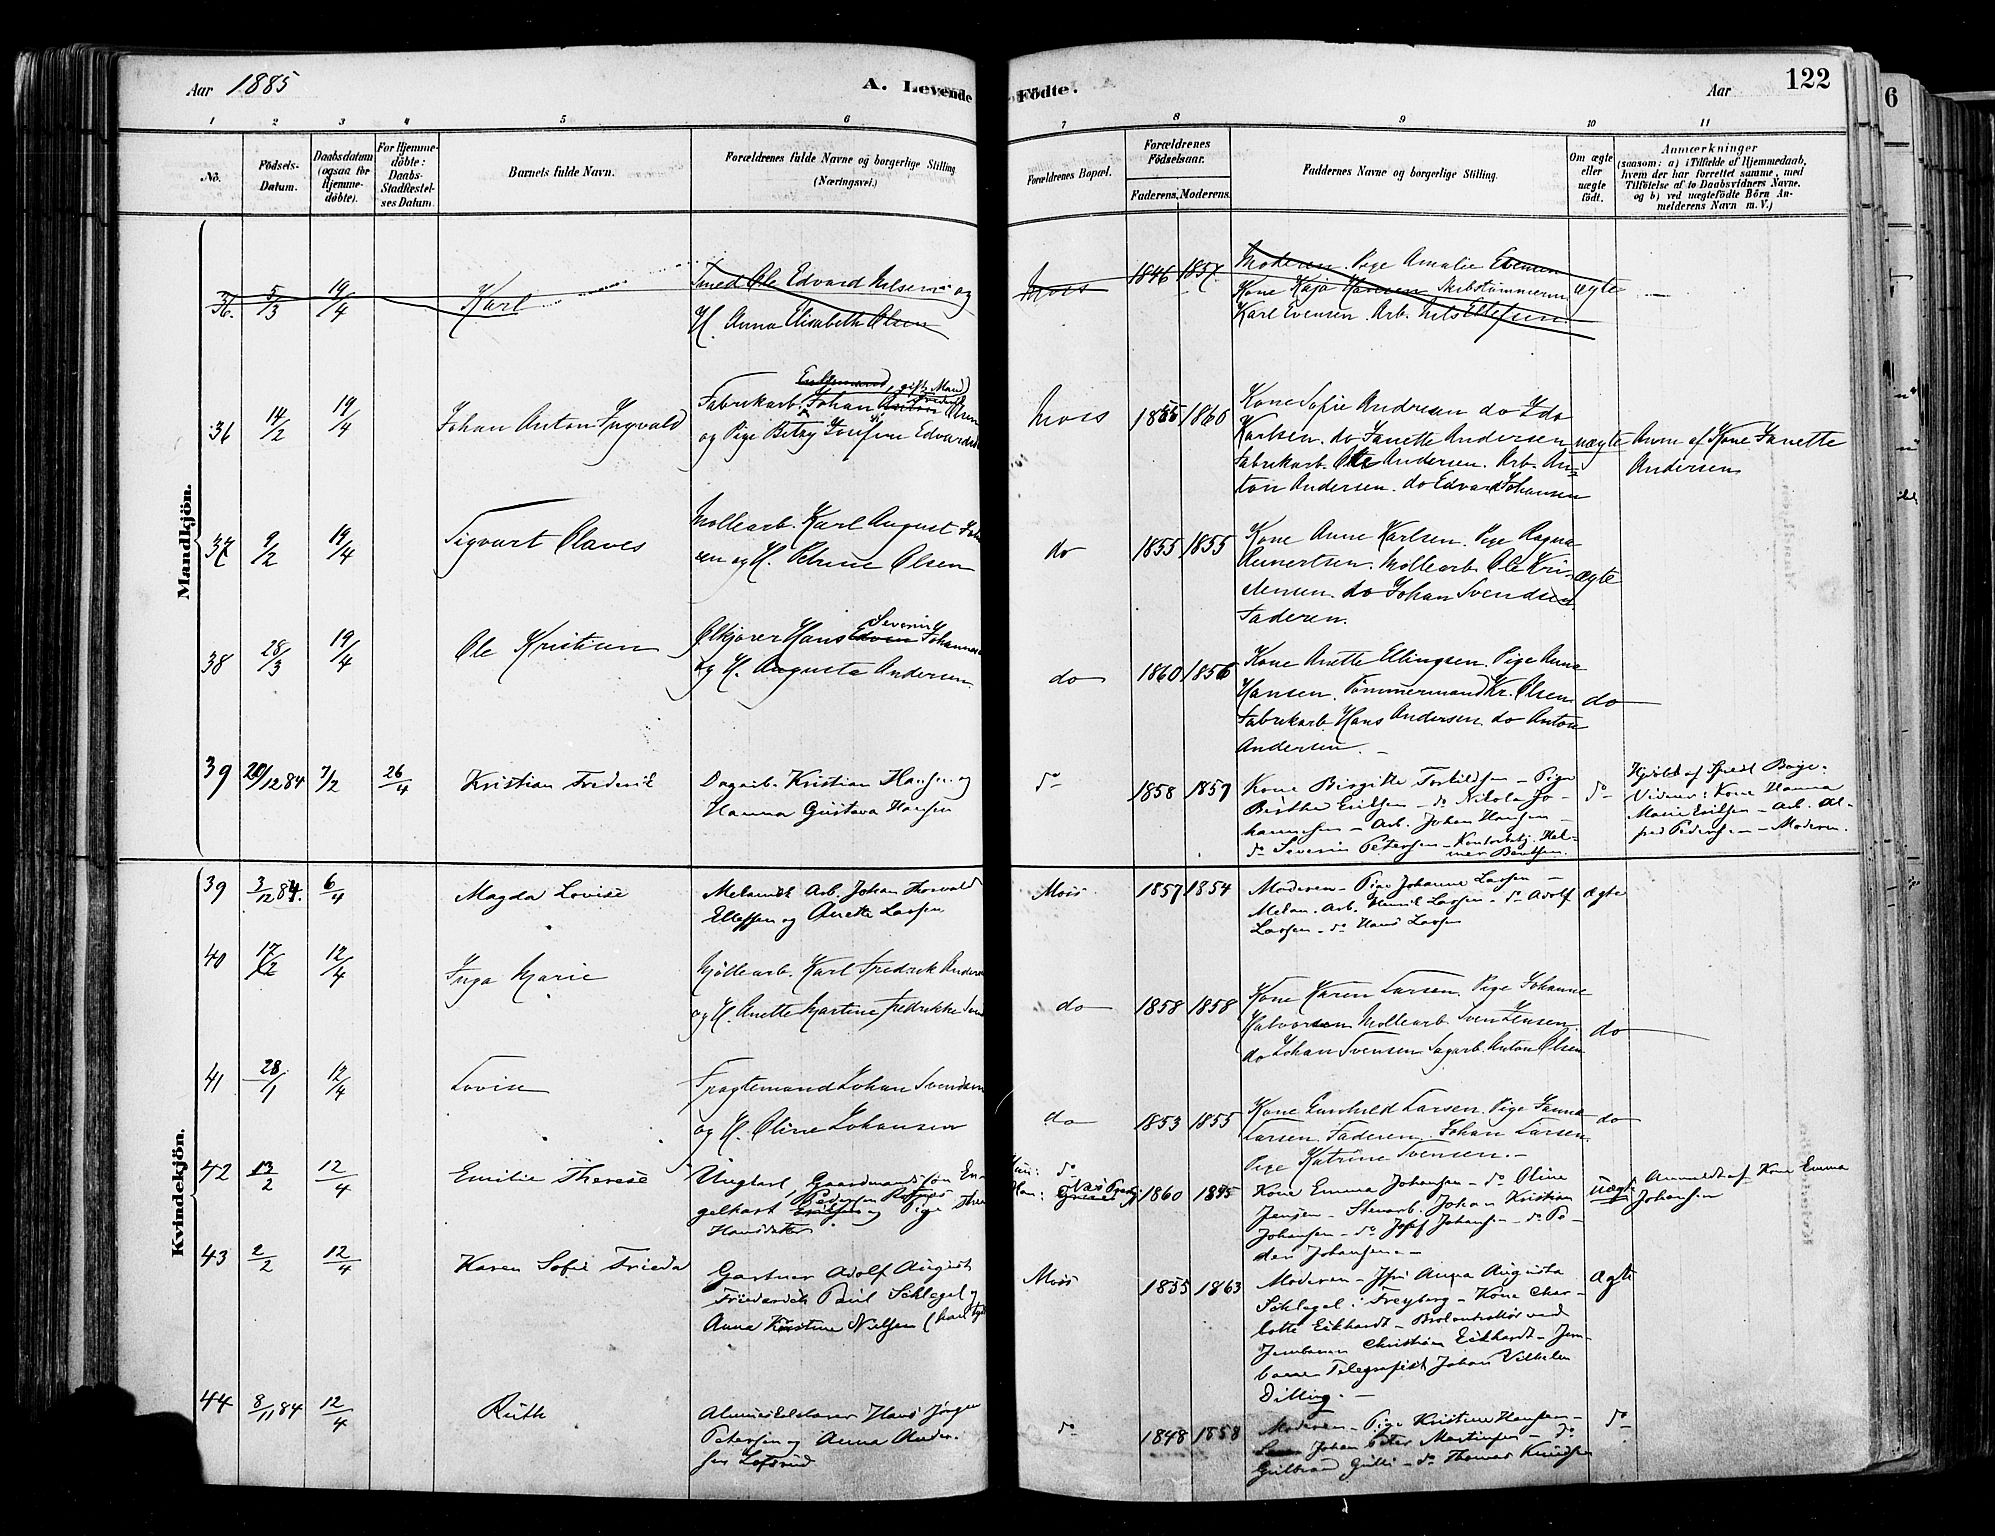 Aar 1885
A. Levende Födte.
Aar
122
6
1 2 3 4 5 6 7 8 9 10 11
No.
Födsels-Datum.
Daabsdatum (ogsaa for Hjemmedöbte).
For Hjemmedöbte: Daabs-Stadfæstelses Datum.
Barnets fulde Navn.
Forældrenes fulde Navne og borgerlige Stilling (Næringsvei.)
Forældrenes Bopæl.
Forældrenes Födselsaar.
Faderens. Moderens.
Faddernes Navne og borgerlige Stilling.
Om ægte eller uægte födt.
Anmærkninger
(saasom: a) i Tilfælde af Hjemmedaab,
hvem der har forrettet samme, med
Tilföielse af to Daabsvidners Navne.
og b) ved uægtefödte Börn Anmelderens Navn m. V.)
Mandkjön.
36. 5/3 19/4 Karl
Smed Ole Edvard Nilsen og
H. Anna Elisabeth Olsen
Moss 1846 1857.
Moderen. Pige Amalie Evensen
Kone Kaja Hansen Skibstømmerm
Karl Evensen. Arb. Nils Ellefsen
ægte
36 14/2 19/4 Johan Anton Yngvald
gift Mand
Fabrikarb. Johan
og Pige Betzy Josefine Edvards
Moss 1855 1860
Kone Sofie Andresen do Ida
Karlsen. do Janette Andersen
Fabrikarb. Ole Andersen. Arb. An-
ton Andersen. do Edvard Johansen
uægte
Anm af Kone Janette
Andersen
37 9/2 19/4 Sigvart Olaves
Møllearb. Karl August Joh
sen og H. Petrine Olsen
do 1855 1855
Kone Anne Karlsen. Pige Ragna
Møllearb. Ole Kri-
stensen. do Johan Svendsen
Faderen.
ægte
38 28/3 19/4 Ole Kristian
Severin
Ølkjører Hans Edvin Johannes
og H. Augusta Andersen
do 1860 1856
Kone Anette Ellingsen. Pige Anna
Hansen. Tømmermand Kr. Olsen
Fabrikarb. Hans Andersen. do Anton
Andersen.
do
39 20/12 84 7/2 26/4 Kristian Frederik
Dagarb. Kristian Hansen og
Hanna Gustava Hansen
do 1858 1857
Kone Birgitte Torkildsen - Pige
Berthe Eriksen - do Nikola Jo-
hannesen - Arb. Johan Hansen -
do Severin Petersen - Kontorbetj. Hel-
mer Bentsen.
do
Hjdøbt af Bøye.
Vidner: Kone Hanna
Marie Eriksen - Arb. Al-
fred Pedersen - Moderen.
Kvindekjön.
39 3/12 84. 6/4 Magda Lovise
Mekanisk Arb. Johan Thorvald
Ellefsen og Anette Larsen
Moss 1857 1854
Moderen - Pige Johanne Larsen -
Mekan. Arb. Henrik Larsen - do Adolf
Larsen - do Hans Larsen
ægte
40 17/2 12/4 Inga Marie
Møllearb. Karl Fredrik Anders
og H. Anette Martine Fredrikke
do 1858 1858
Kone Karen Larsen. Pige Johanne
Halvorsen Møllearb. Sven Jensen
do Johan Svensen Sagarb. Anton Olsen
do
41 28/1 12/4 Lovise
Fragtemand Johan Svendsen
og H. Oline Johansen
do 1853 1855
Kone Gunhild Larsen. Pige Janna
Larsen. Faderen. Johan Larsen
Pige Katrine Svensen. -
do
42 13/2 12/4 Emilie Therese
Ungkarl, Gaardmandssøn En-
gelhart Pedersen og Pige
Hansdatter
do
1860 1845
Kone Emma Johansen - do Oline
Jensen - Stenarb. Johan Kristian
Johansen - do Josef Johansen - do Pe-
der Johansen -
Uægte
Anmeldt af Kone Emma
Johansen
43 2/2 12/4 Karen Sofie Frieda
Gartner Adolf August
Friederich Paul Schlegel og
Anna Kristine Nielsen
Moss 1855 1863
Moderen - Jfr Anna Augusta
Schlegel i Freyberg - Kone Char-
lotte Eckhardt - ved
Jernbanen Christian Eckhardt - Jern-
bane Telegrafist Johan Vilhelm
Dilling. -
ægte
44 8/11 84 12/4 Ruth
Hans Jørgen
Petersen og Anna Ander-
sen
do 1848 1858
Moderen - Pige Kristine Hansen -
Johan Peter Martinsen - do
Gulbrand Gulli - do Thomas Knudsen
do